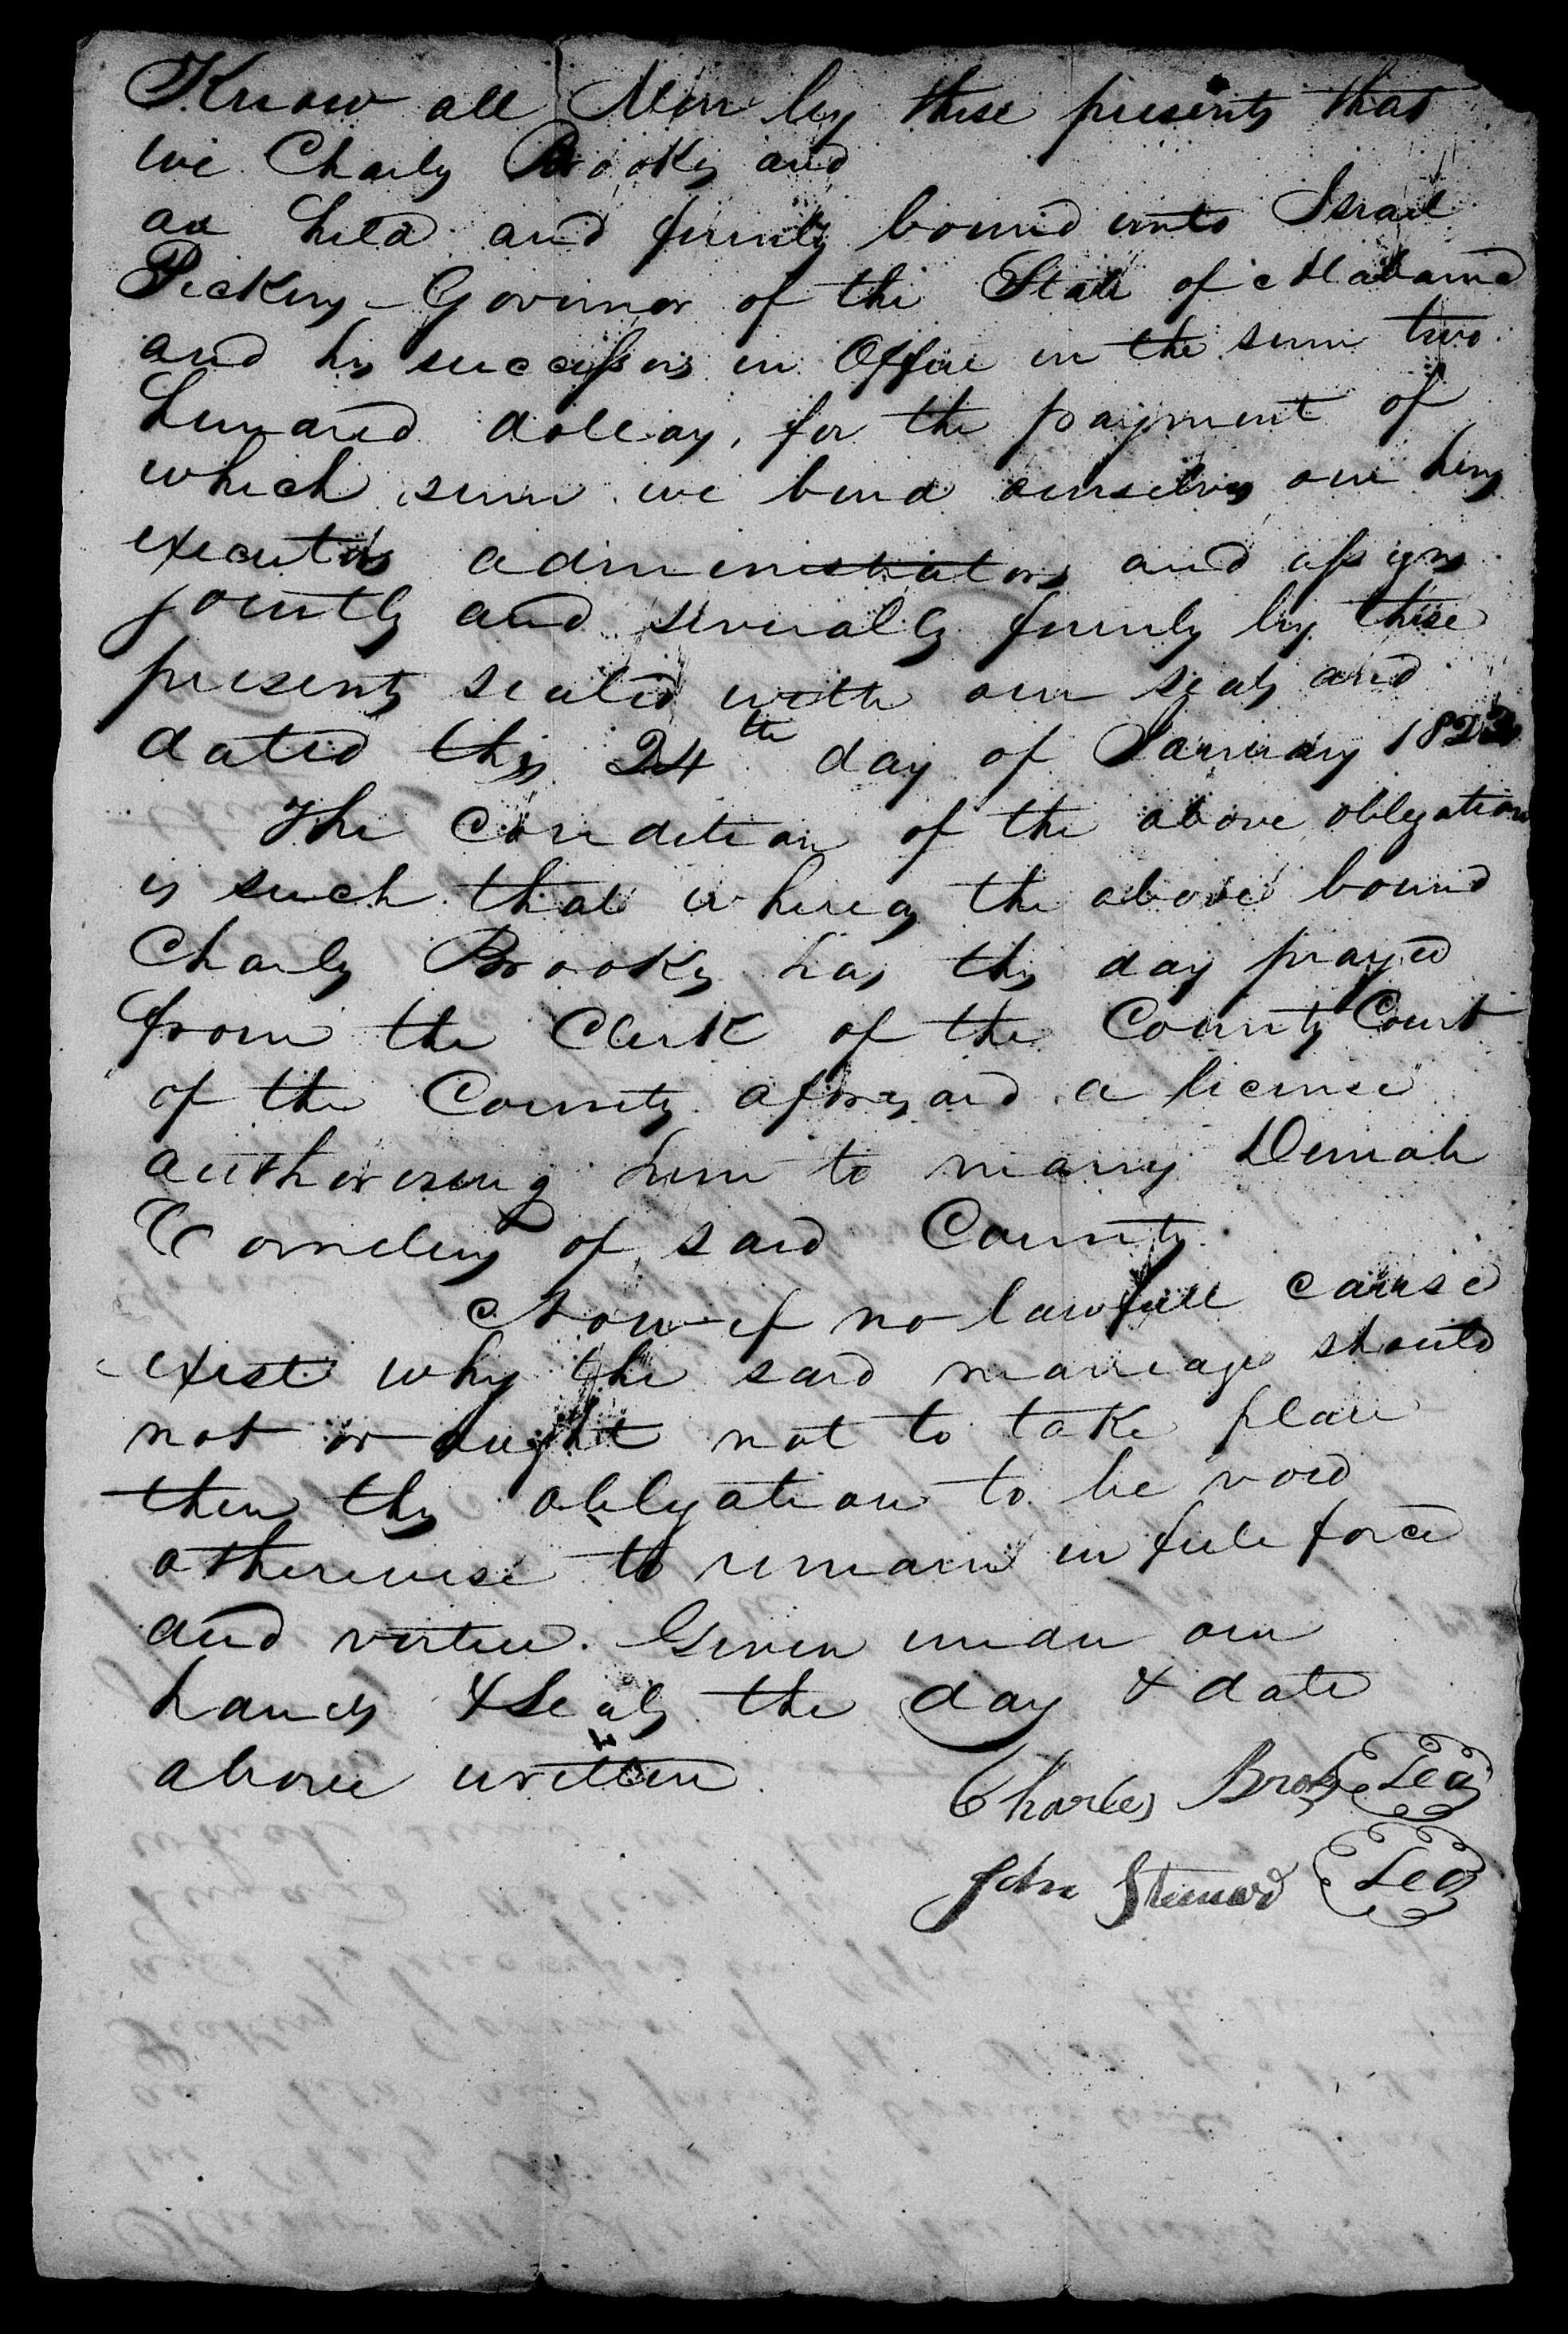 Know all Men by these presents that
we Charles Brooks and
are held and firmly bound unto Israel
Pickens Governor of the State of Alabama
and his successors in Office in the sum two
hundred dollars, for the payment of
which sum we bind ourselves our heirs
executors administrators and assigns
jointly and severally firmly by these
presents sealed with our seals and
dated this 24th day of January 1823
The condition of the above obligation
is such that whereas the above bound
Charles Brooks has this day prayed
from the Clerk of the County Court
of the County aforesaid a license
authorising him to marry Demah
of said County
Now if no lawfull cause
exist why the said marriage should
not or ought not to take place
then this obligation to be void
otherwise to remain in full force
and virtue. Given under our
hands & seals the day & date
above written.
Charles Brooks Seal
John Steward Seal